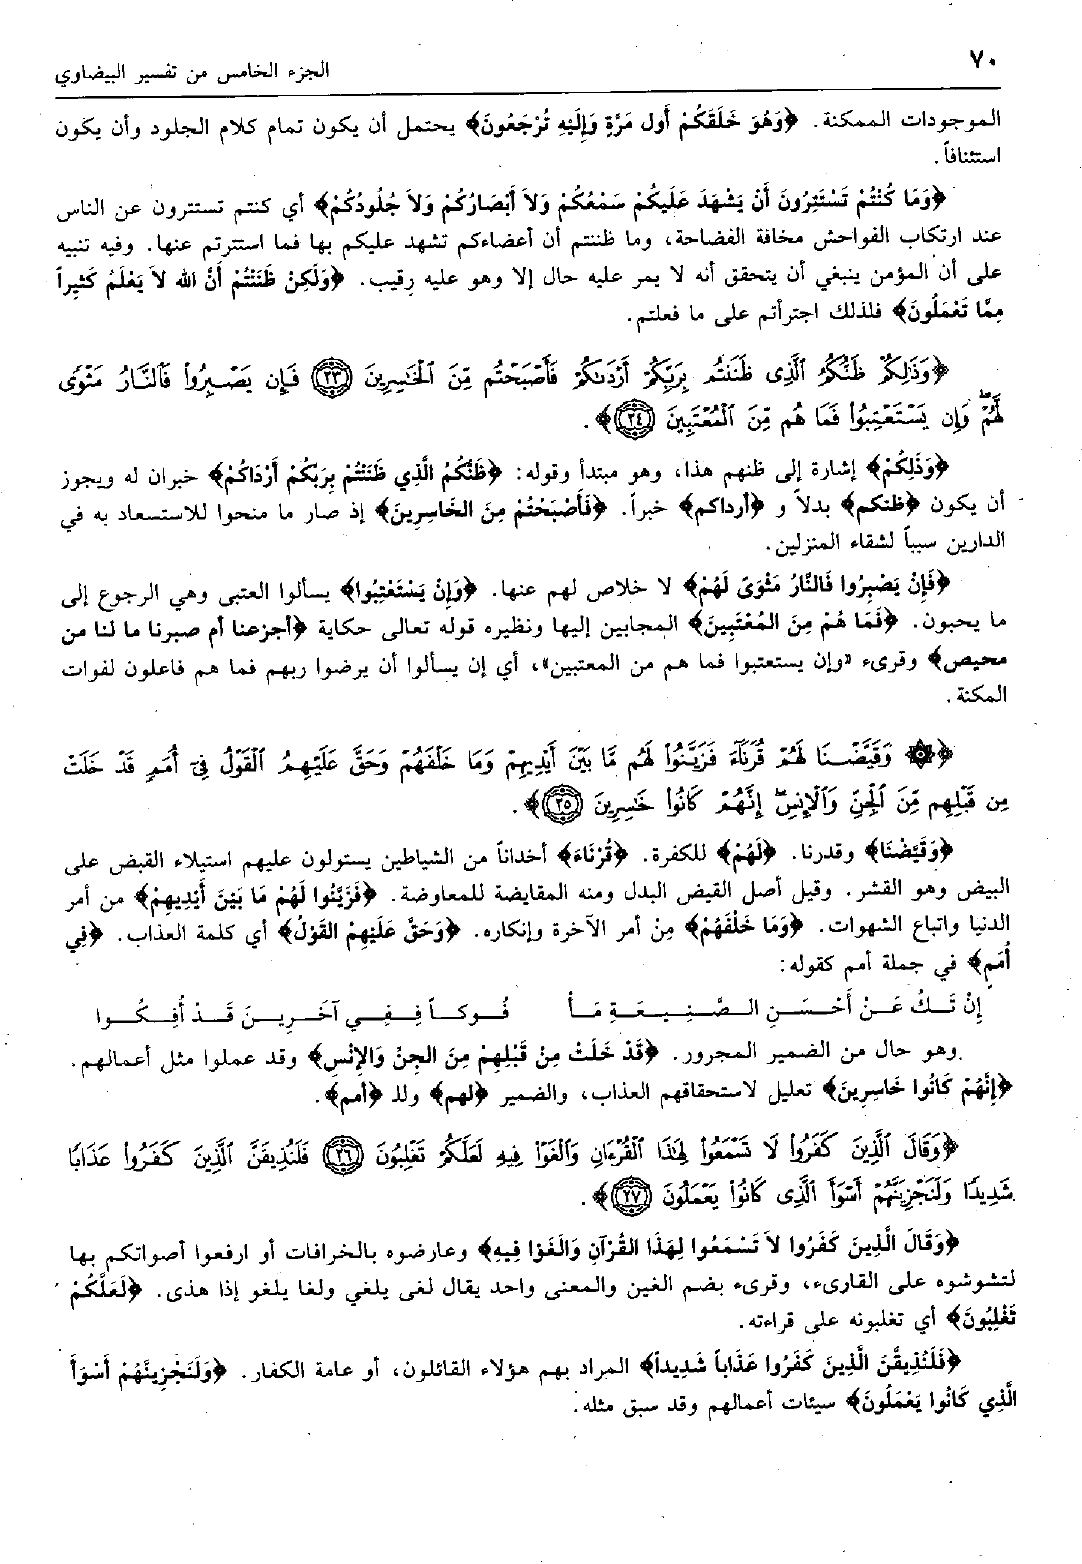 ٧٠
الجزء الخامس من تفسير البيضاوي
الموجودات الممكنة. ﴿وَهُوَ خَلَقَكُمْ أَول مَرَّةٍ وَإِلَيْهِ تُرْجَعُونَ﴾ يحتمل أن يكون تمام كلام الجلود وأن يكون
استئنافاً.
﴿وَمَا كُنْتُمْ تَسْتَتِرُونَ أَنْ يَشْهَدَ عَلَيكُمْ سَمْعُكُمْ وَلاَ أَبْصَارُكُمْ وَلاَ جُلُودُكُمْ﴾ أي كنتم تستترون عن الناس
عند ارتكاب الفواحش مخافة الفضاحة، وما ظننتم أن أعضاءكم تشهد عليكم بها فما استترتم عنها. وفيه تنبيه
على أن المؤمن ينبغي أن يتحقق أنه لا يمر عليه حال إلا وهو عليه رقيب. ﴿وَلَكِنْ ظَنَنْتُمْ أَنَّ الله لاَ يَعْلَمُ كَثِيراً
مِمَّا تَعْمَلُونَ﴾ فلذلك اجترأتم على ما فعلتم.
﴿وَذَٰلِكُمْ ظَنُّكُمُ ٱلَّذِى ظَنَنتُم بِرَبِّكُمْ أَرْدَىٰكُمْ فَأَصْبَحْتُم مِّنَ ٱلْخَٰسِرِينَ ٢٣ فَإِن يَصْبِرُوا۟ فَٱلنَّارُ مَثْوًى
لَّهُمْ ۖ وَإِن يَسْتَعْتِبُوا۟ فَمَا هُم مِّنَ ٱلْمُعْتَبِينَ ٢٤﴾.
﴿وَذَلِكُمْ﴾ إشارة إلى ظنهم هذا، وهو مبتدأ وقوله: ﴿ظَنُّكُمُ الَّذِي ظَنَنْتُمْ بِرَبِّكُمْ أَرْدَاكُمْ﴾ خبران له ويجوز
أن يكون ﴿ظنكم﴾ بدلاً و ﴿أرداكم﴾ خبراً. ﴿فَأَصْبَحْتُمْ مِنَ الخَاسِرِينَ﴾ إذ صار ما منحوا للاستسعاد به في
الدارين سبباً لشقاء المنزلين.
﴿فَإِنْ يَصْبِرُوا فَالنَّارُ مَثْوَىً لَهُمْ﴾ لا خلاص لهم عنها. ﴿وَإِنْ يَسْتَعْتِبُوا﴾ يسألوا العتبى وهي الرجوع إلى
ما يحبون. ﴿فَمَا هُمْ مِنَ المُعْتَبِينَ﴾ المجابين إليها ونظيره قوله تعالى حكاية ﴿أجزعنا أم صبرنا ما لنا من
محيص﴾ وقرىء «وإن يستعتبوا فما هم من المعتبين»، أي إن يسألوا أن يرضوا ربهم فما هم فاعلون لفوات
المكنة.
﴿۞ وَقَيَّضْنَا لَهُمْ قُرَنَآءَ فَزَيَّنُوا۟ لَهُم مَّا بَيْنَ أَيْدِيهِمْ وَمَا خَلْفَهُمْ وَحَقَّ عَلَيْهِمُ ٱلْقَوْلُ فِىٓ أُمَمٍ قَدْ خَلَتْ
مِن قَبْلِهِم مِّنَ ٱلْجِنِّ وَٱلْإِنسِ ۖ إِنَّهُمْ كَانُوا۟ خَٰسِرِينَ ٢٥﴾.
﴿وَقَيَّضْنَا﴾ وقدرنا. ﴿لَهُمْ﴾ للكفرة. ﴿قُرْنَاءَ﴾ أخداناً من الشياطين يستولون عليهم استيلاء القيض على
البيض وهو القشر. وقيل أصل القيض البدل ومنه المقايضة للمعاوضة. ﴿فَزَيَّنُوا لَهُمْ مَا بَيْنَ أَيْدِيهِمْ﴾ من أمر
الدنيا واتباع الشهوات. ﴿وَمَا خَلْفَهُمْ﴾ مِن أمر الآخرة وإنكاره. ﴿وَحَقَّ عَلَيهِمْ القَوْلُ﴾ أي كلمة العذاب. ﴿فِي
أُمَمٍ﴾ في جملة أمم كقوله:
إِنْ تَكُ عَنْ أَحْسَنِ الصَّنِيعَةِ مَأْ فُوكاً فَفِي آخَرِينَ قَدْ أُفِكُوا
وهو حال من الضمير المجرور. ﴿قَدْ خَلَتْ مِنْ قَبْلِهِمْ مِنَ الجِنِّ وَالإِنْسِ﴾ وقد عملوا مثل أعمالهم.
﴿إِنَّهُمْ كَانُوا خَاسِرِينَ﴾ تعليل لاستحقاقهم العذاب، والضمير ﴿لهم﴾ ولل ﴿أمم﴾.
﴿وَقَالَ ٱلَّذِينَ كَفَرُوا۟ لَا تَسْمَعُوا۟ لِهَٰذَا ٱلْقُرْءَانِ وَٱلْغَوْا۟ فِيهِ لَعَلَّكُمْ تَغْلِبُونَ ٢٦ فَلَنُذِيقَنَّ ٱلَّذِينَ كَفَرُوا۟ عَذَابًا
شَدِيدًا وَلَنَجْزِيَنَّهُمْ أَسْوَأَ ٱلَّذِى كَانُوا۟ يَعْمَلُونَ ٢٧﴾.
﴿وَقَالَ الَّذِينَ كَفَرُوا لاَ تَسْمَعُوا لِهَذَا القُرْآنِ وَالغَوْا فِيهِ﴾ وعارضوه بالخرافات أو ارفعوا أصواتكم بها
لتشوشوه على القارىء، وقرىء بضم الغين والمعنى واحد يقال لغى يلغي ولغا يلغو إذا هذى. ﴿لَعَلَّكُمْ
تَغْلِبُونَ﴾ أي تغلبونه على قراءته.
﴿فَلَنُذِيقَنَّ الَّذِينَ كَفَرُوا عَذَاباً شَدِيداً﴾ المراد بهم هؤلاء القائلون، أو عامة الكفار. ﴿وَلَنَجْزِيَنَّهُمْ أَسْوَأَ
الَّذِي كَانُوا يَعْمَلُونَ﴾ سيئات أعمالهم وقد سبق مثله.